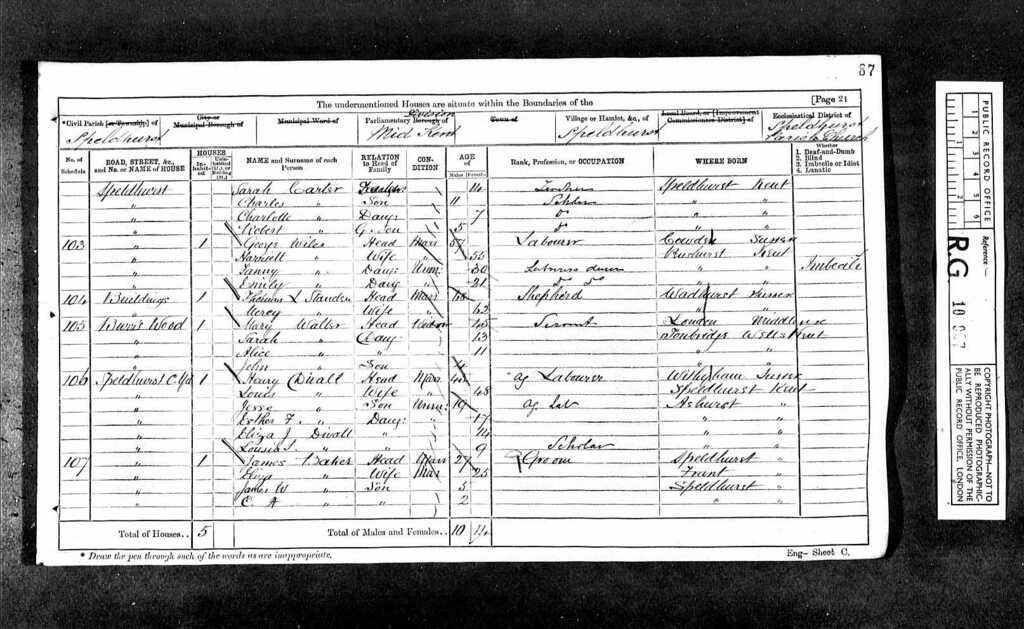 87
The undermentioned Houses are situate within the Boundaries of the [Page 21
*Civil Parish [or Township] of City or Municipal Borough of Municipal Ward of Parliamentary Borough of Division Town of Village or Hamlet, &c., of Local Board, or [Improvement Commissioners District] of Ecclesiastical District of
Speldhurst Mid Kent Speldhurst Speldhurst Parish Church
No. of Schedule ROAD, STREET, &c., and No. or NAME of HOUSE HOUSES Inhabited Uninhabited (U.), or Building (B.) NAME and Surname of each Person RELATION to Head of Family CONDITION AGE Males Females Rank, Profession, or OCCUPATION WHERE BORN Whether 1. Deaf-and-Dumb 2. Blind 3. Imbecile or Idiot 4. Lunatic
Speldhurst Sarah Carter 14 Speldhurst Kent
" Charles " Son 11 " "
" Charlotte " Daur 7 " "
" Robert " G. Son 5 " "
103 " 1 George Wiles Head Marr 57 Labourer Cowden Sussex
" Harriett " Wife " 55 Kent
" Fanny " Daur Unm: 30 " " Imbecile
" Emily " Daur " 21
104 Buildings 1 Thomas L Standen Head Marr Shepherd Wadhurst Sussex
" Mercy " Wife " 62
105 Wood 1 Mary Walter Head Widow 45 Servant London Middlesex
" Sarah " Daur 13 Tonbridge Wells Kent
" Alice " " 11 " "
" John " Son 4 " "
106 Speldhurst 1 Henry Divall Head Marr Ag Labourer Withyham Sussex
" Louis " Wife " 48 Speldhurst Kent
" Jesse " Son Unm: 19 Ag. Lab Ashurst "
" Esther F. " Daur 17 " "
" Eliza J Divall " 14 " "
" Louisa S. " " 9 Scholar " "
107 " 1 James Baker Head Marr 27 Groom Speldhurst "
" Eliza " Wife Marr 25 Frant "
" James W " Son 5 Speldhurst "
" C. A " " 2 " "
Total of Houses.. 5 Total of Males and Females.. 10 14
* Draw the pen through such of the words as are inappropriate. Eng- Sheet C.
PUBLIC RECORD OFFICE
1 2 3 4 5 6
Reference :—
R.G. 10
COPYRIGHT PHOTOGRAPH—NOT TO BE REPRODUCED PHOTOGRAPHICALLY WITHOUT PERMISSION OF THE PUBLIC RECORD OFFICE, LONDON